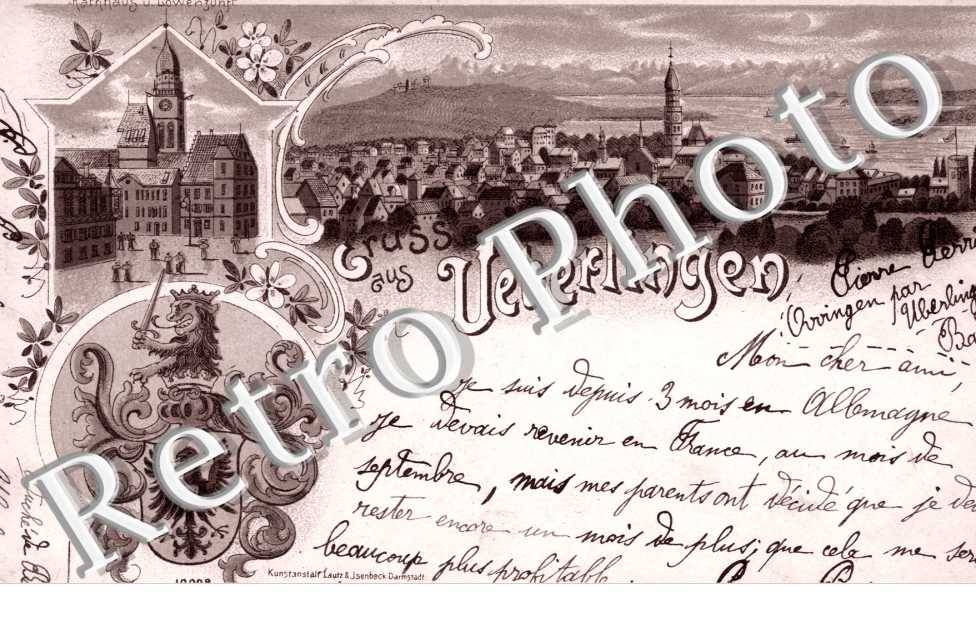 Rathhaus u. Löwenzunft
Gruss
aus
Ueberlingen
Retro Photo
Pierre
par
Mon cher ami,
Je suis depuis 3 mois en Allemagne
Je devais revenir en France, au mois de
septembre, mais mes parents ont décidé que je
rester encore un mois de plus; que cela me
beaucoup plus profitable.
Kunstanstalt Lautz & Isenbeck Darmstadt